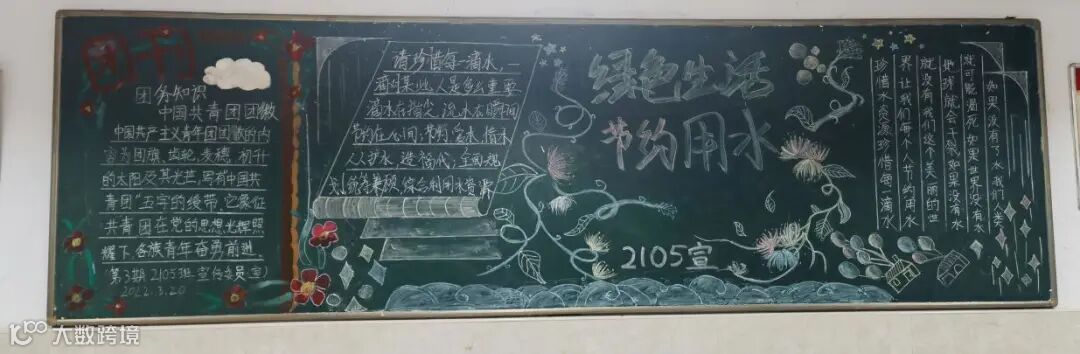 团刊
团务知识
中国共青团团徽
中国共产主义青年团团徽的内
容为团旗、齿轮、麦穗、初升
的太阳及其光芒，写有中国共
青团"五字的绶带。它象征
共青团在党的思想光辉照
耀下，各族青年奋勇前进。
(第3期 2105班 宣传委员 宣)
2022.3.20
请珍惜每一滴水，一
滴水在指尖，流水在瞬间
节约在心间，节约
人人护水，造福
综合利用水资源
绿色生活
节约用水
2105宣
如果没有了水，我们人类
就可能渴死，如果世界没有水
地球就会干枯，如果没有水
就没有我们这个美丽的世
界，让我们每个人节约用水
珍惜水资源，珍惜每一滴水
大数跨境